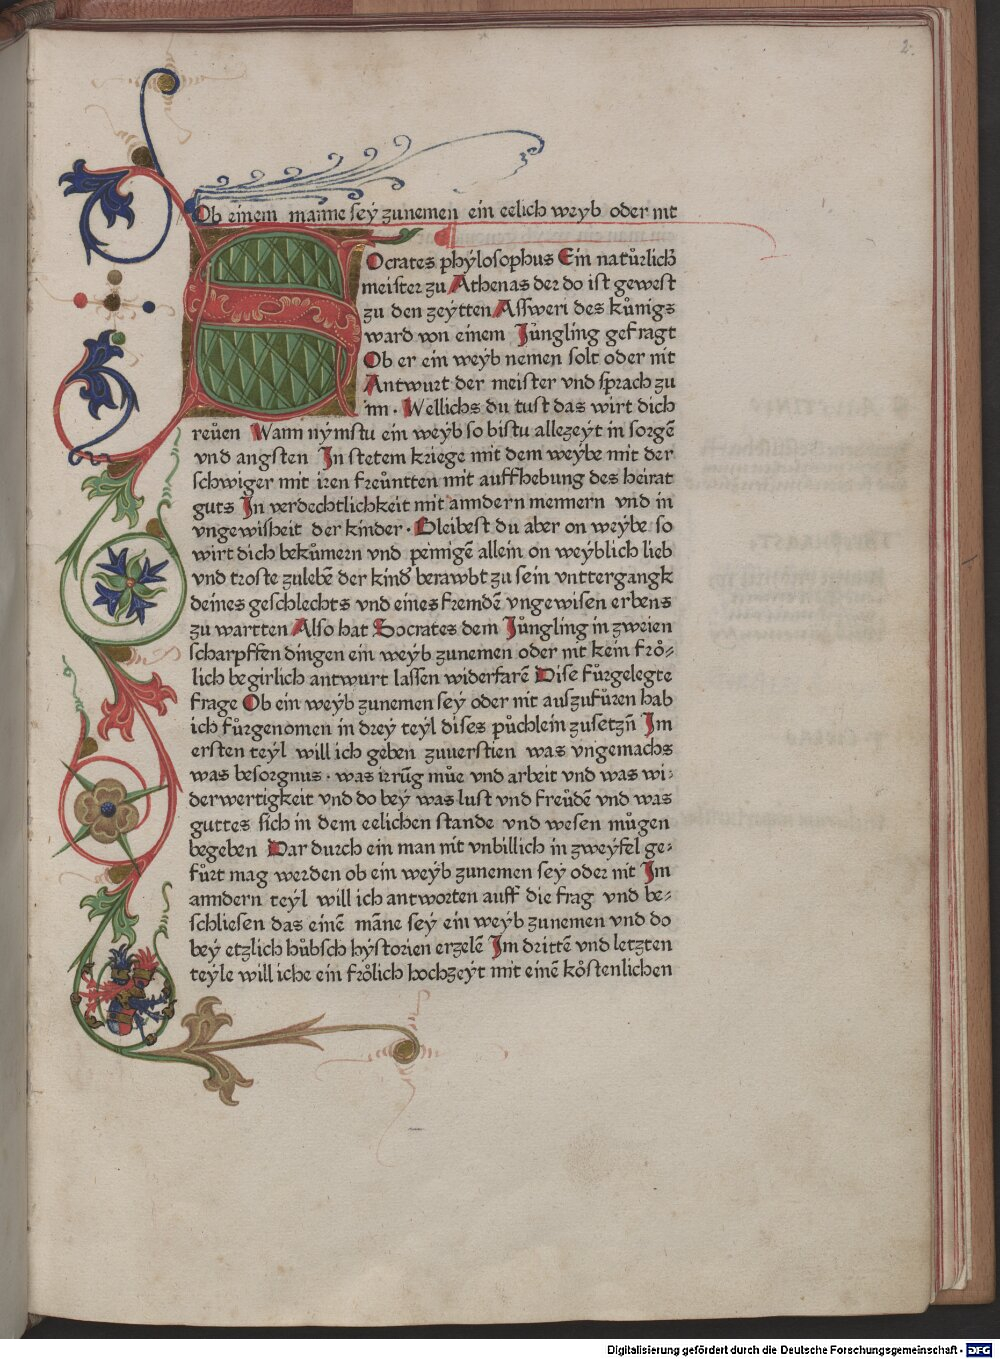 2.
Ob einem manne sey zunemen ein eelich weyb oder nit
SOcrates phylosophus Ein natůrlich
meister zu Athenas der do ist gewest
zu den zeytten Assweri des kůnigs
ward von einem Jůngling gefragt
Ob er ein weyb nemen solt oder nit
Antwurt der meister vnd sprach zu
im · Wellichs du tust das wirt dich
reůen Wann nymstu ein weyb so bistu allezeyt in sorgē
vnd angsten In stetem kriege mit dem weybe mit der
schwiger mit iren freůntten mit auffhebung des heirat
guts In verdechtlichkeit mit anndern mennern vnd in
vngewisheit der kinder · Bleibest du aber on weybe so
wirt dich bekůmern vnd peinigē allein on weyblich lieb
vnd troste zulebē der kind berawbt zu sein vnttergangk
deines geschlechts vnd eines fremdē vngewisen erbens
zu wartten Also hat Socrates dem Jůngling in zweien
scharpffen dingen ein weyb zunemen oder nit kein frő⸗
lich begirlich antwurt lassen widerfarē Dise fůrgelegte
frage Ob ein weyb zunemen sey oder nit auszufůren hab
ich fůrgenomen in drey teyl dises půchlein zusetzn̄ Im
ersten teyl will ich geben zuuerstien was vngemachs
was besorgnus · was irrūg můe vnd arbeit vnd was wi⸗
derwertigkeit vnd do bey was lust vnd freůdē vnd was
guttes sich in dem eelichen stande vnd wesen můgen
begeben Dar durch ein man nit vnbillich in zweyfel ge⸗
fůrt mag werden ob ein weyb zunemen sey oder nit Im
anndern teyl will ich antworten auff die frag vnd be⸗
schliesen das einē māne sey ein weyb zunemen vnd do
bey etzlich hůbsch hystorien erzelē Im drittē vnd letzten
teyle will iche ein frőlich hochzeyt mit einē kőstenlichen
Digitalisierung gefördert durch die Deutsche Forschungsgemeinschaft - DFG